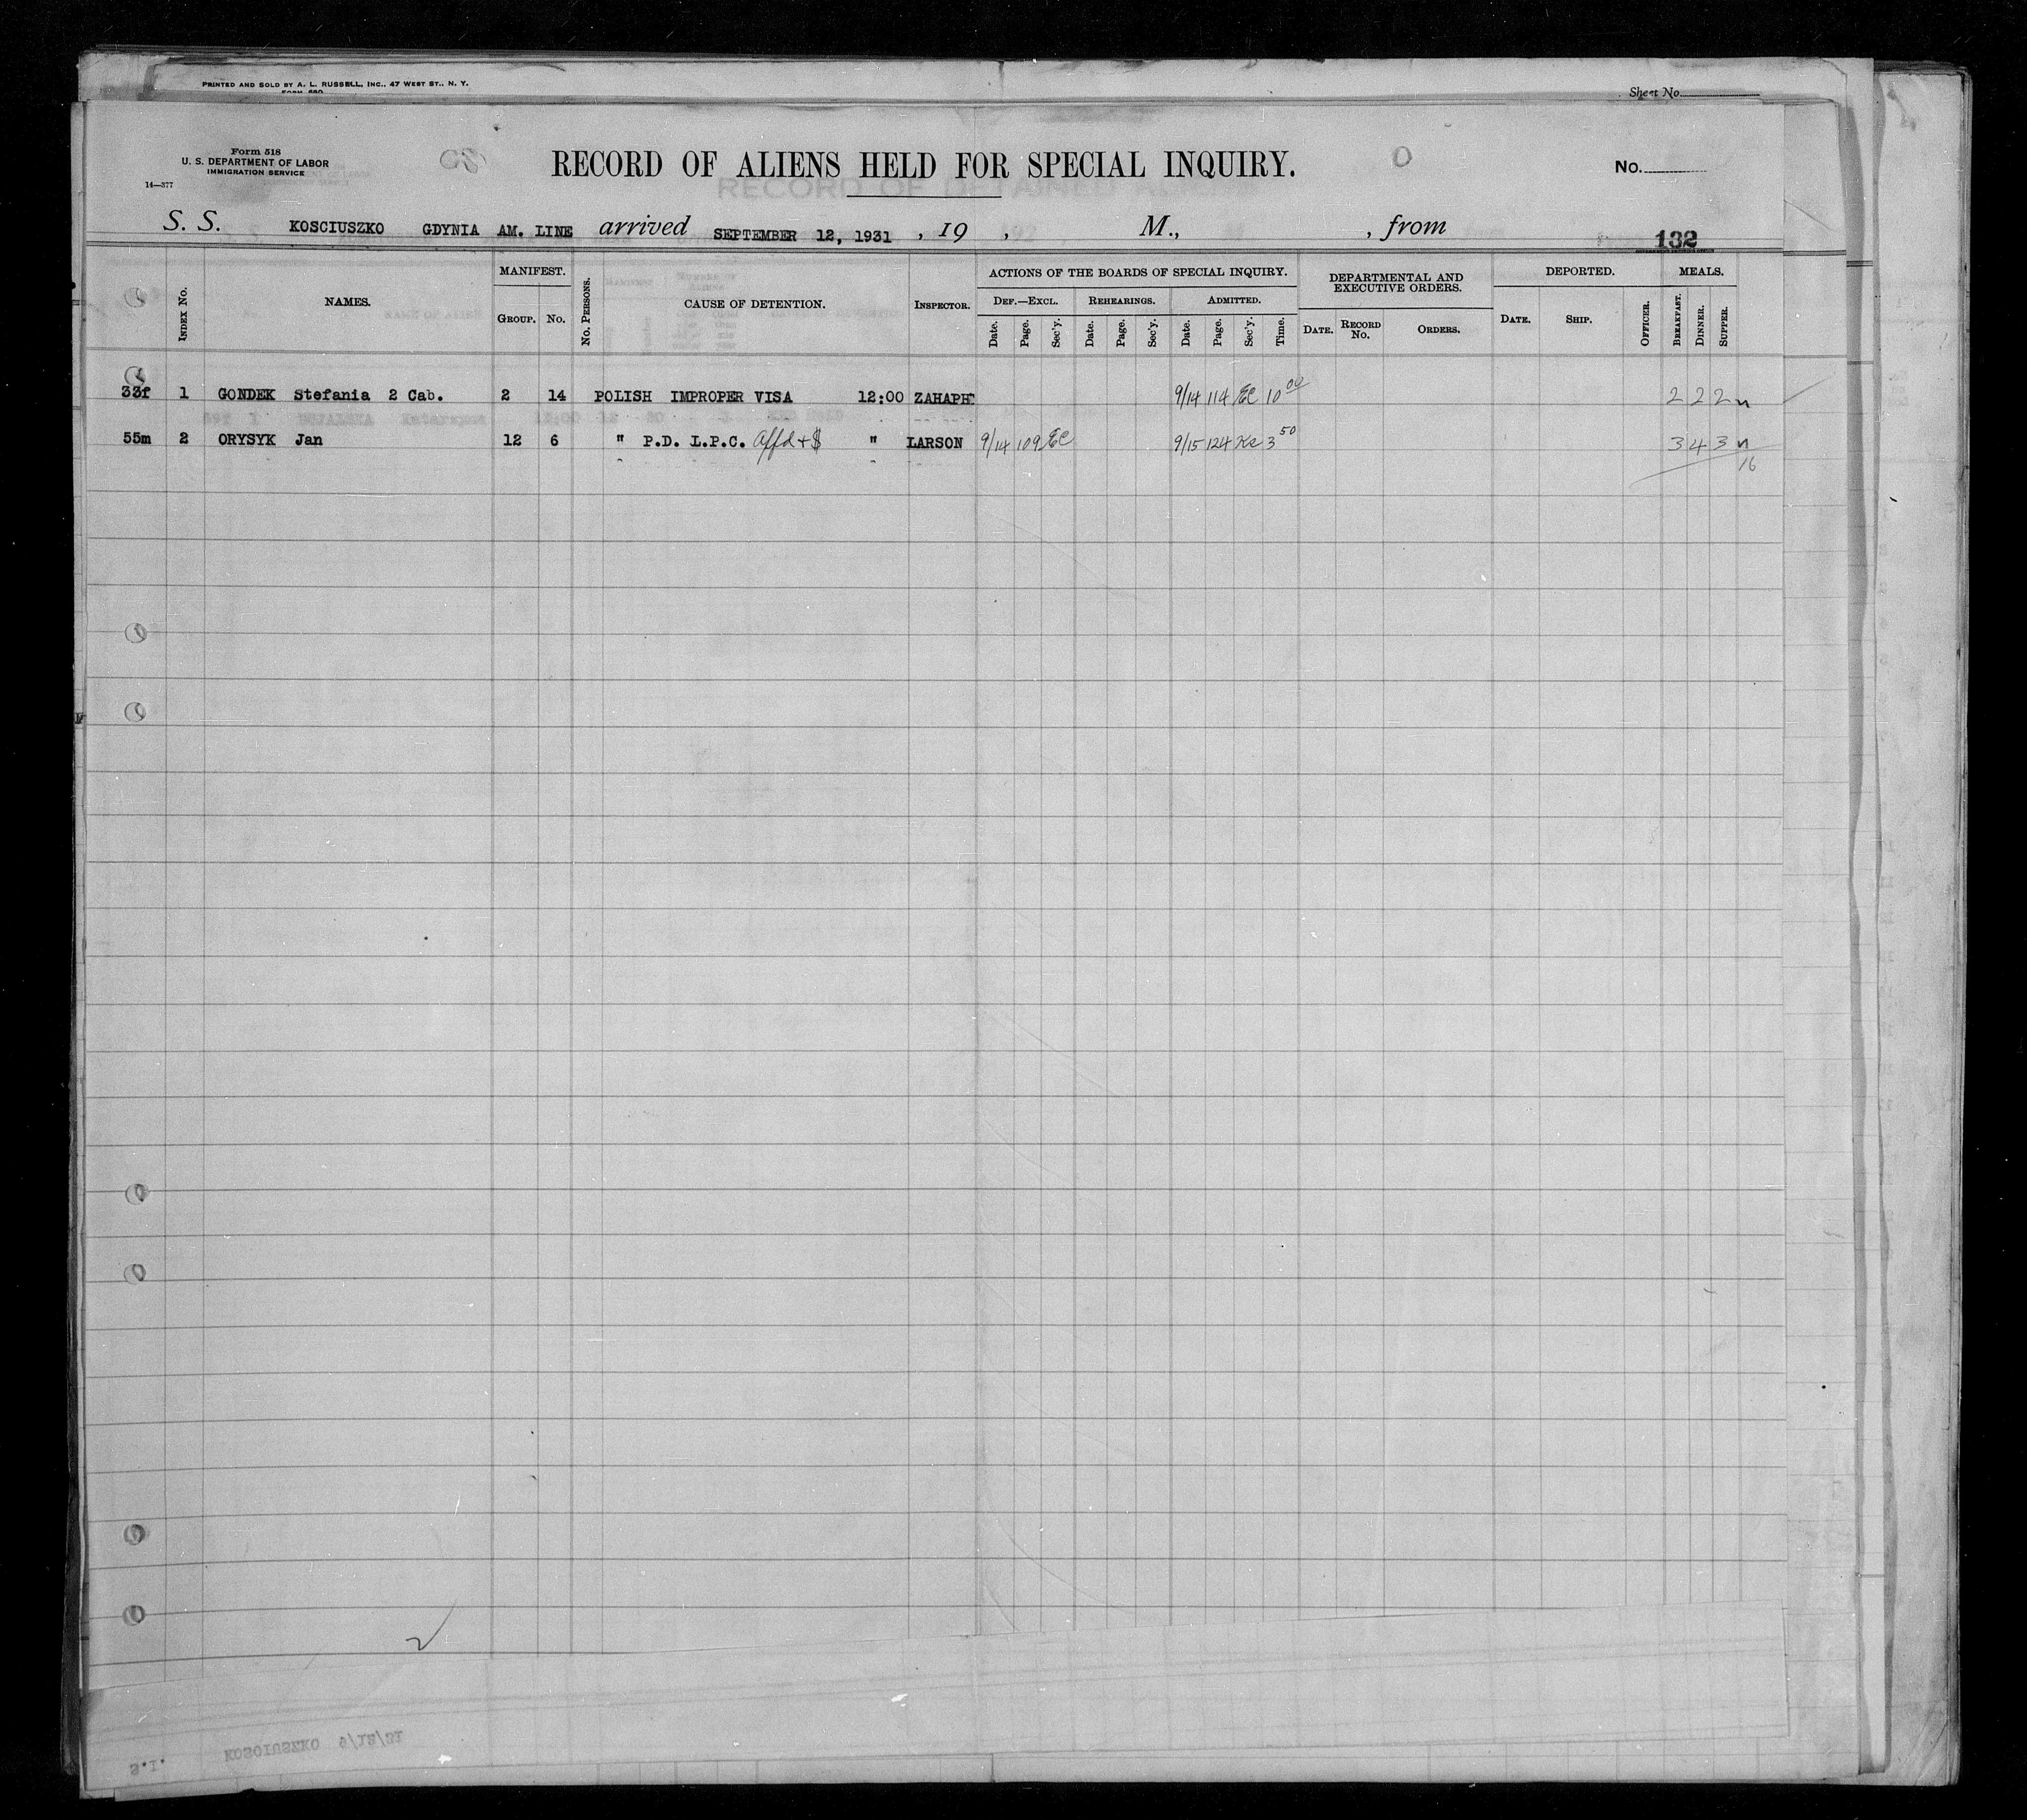 PRINTED AND SOLD BY A. L. RUSSELL, INC., 47 WEST ST., N. Y.
FORM 680
Sheet No.
Form 518
U. S. DEPARTMENT OF LABOR
IMMIGRATION SERVICE
14—377
RECORD OF ALIENS HELD FOR SPECIAL INQUIRY.
No.
S. S. KOSCIUSZKO GDYNIA AM. LINE arrived SEPTEMBER 12, 1931, 19 , M., , from
132
INDEX NO. NAMES. MANIFEST. GROUP. NO. NO. PERSONS. CAUSE OF DETENTION. INSPECTOR. ACTIONS OF THE BOARDS OF SPECIAL INQUIRY. DEF.—EXCL. Date. Page. Sec'y. REHEARINGS. Date. Page. Sec'y. ADMITTED. Date. Page. Sec'y. Time. DEPARTMENTAL AND EXECUTIVE ORDERS. DATE. RECORD NO. ORDERS. DEPORTED. DATE. SHIP. OFFICER. MEALS. BREAKFAST. DINNER. SUPPER.
33f 1 GONDEK Stefania 2 Cab. 2 14 POLISH IMPROPER VISA 12:00 ZAHAPH 9/14 114 EC 10 00 2 2 2 n
55m 2 ORYSYK Jan 12 6 " P.D. L.P.C. Affd + $ " LARSON 9/14 109 EC 9/15 124 3 50 3 4 3 n
16
S.I. KOSCIUSZKO 9/12/31